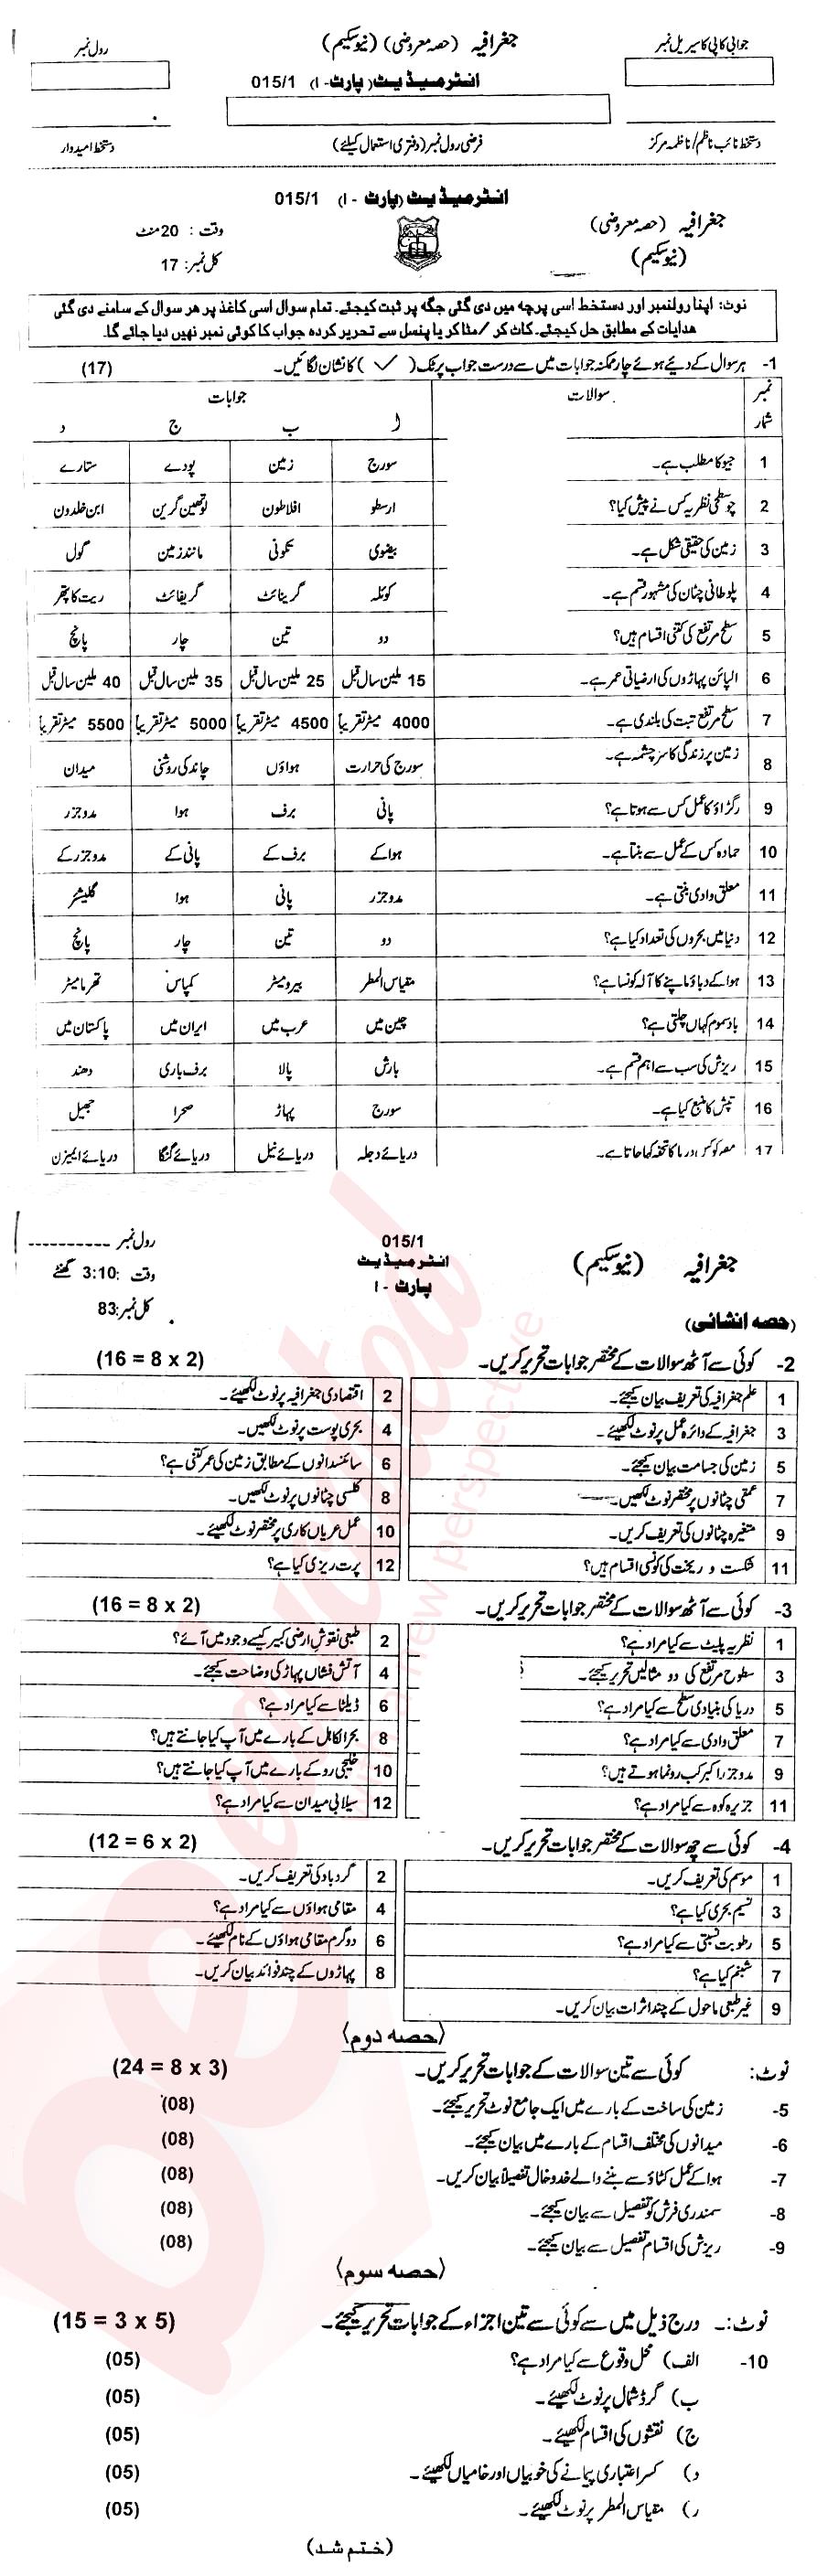 جغرافیہ (حصہ معروضی) (نیوسکیم)
جوابی کاپی کا سیریل نمبر
رول نمبر
انٹرمیڈیٹ (پارٹ - I) 015/1
دستخط نائب ناظم/ناظمہ مرکز
فرضی رول نمبر (دفتری استعمال کیلئے)
دستخط امیدوار
انٹرمیڈیٹ (پارٹ - I) 015/1
جغرافیہ (حصہ معروضی)
وقت : 20 منٹ
(نیوسکیم)
کل نمبر: 17
نوٹ: اپنا رولنمبر اور دستخط اسی پرچہ میں دی گئی جگہ پر ثبت کیجئے۔ تمام سوال اسی کاغذ پر ھر سوال کے سامنے دی گئی
ھدایات کے مطابق حل کیجئے۔ کاٹ کر / مٹا کر یا پنسل سے تحریر کردہ جواب کا کوئی نمبر نھیں دیا جائے گا۔
1- ہر سوال کے دیئے ہوئے چار ممکنہ جوابات میں سے درست جواب پر ٹک (✓) کا نشان لگائیں۔ (17)
نمبر شمار سوالات جوابات
ا ب ج د
1 جیو کا مطلب ہے۔ سورج زمین پودے ستارے
2 چوسطحی نظریہ کس نے پیش کیا؟ ارسطو افلاطون لوتھین گرین ابن خلدون
3 زمین کی حقیقی شکل ہے۔ بیضوی تکونی مانند زمین گول
4 پلوطانی چٹان کی مشہور قسم ہے۔ کوئلہ گرینائٹ گریفائٹ ریت کا پتھر
5 سطح مرتفع کی کتنی اقسام ہیں؟ دو تین چار پانچ
6 الپائن پہاڑوں کی ارضیاتی عمر ہے۔ 15 ملین سال قبل 25 ملین سال قبل 35 ملین سال قبل 40 ملین سال قبل
7 سطح مرتفع تبت کی بلندی ہے۔ 4000 میٹر تقریباً 4500 میٹر تقریباً 5000 میٹر تقریباً 5500 میٹر تقریباً
8 زمین پر زندگی کا سرچشمہ ہے۔ سورج کی حرارت ہواؤں چاند کی روشنی میدان
9 رگڑاؤ کا عمل کس سے ہوتا ہے؟ پانی برف ہوا مدوجزر
10 حمادہ کس کے عمل سے بنتا ہے۔ ہوا کے برف کے پانی کے مدوجزر کے
11 معلق وادی بنتی ہے۔ مدوجزر پانی ہوا گلیشئر
12 دنیا میں بحروں کی تعداد کیا ہے؟ دو تین چار پانچ
13 ہوا کے دباؤ ماپنے کا آلہ کونسا ہے؟ مقیاس المطر بیرومیٹر کمپاس تھرمامیٹر
14 بادسموم کہاں چلتی ہے؟ چین میں عرب میں ایران میں پاکستان میں
15 ریزش کی سب سے اہم قسم ہے۔ بارش پالا برف باری دھند
16 تپش کا منبع کیا ہے۔ سورج پہاڑ صحرا جھیل
17 مصر کو کس دریا کا تحفہ کہا جاتا ہے۔ دریائے دجلہ دریائے نیل دریائے گنگا دریائے ایمیزن
015/1
رول نمبر ----------
جغرافیہ (نیوسکیم)
انٹرمیڈیٹ
وقت :3:10 گھنٹے
پارٹ - I
کل نمبر:83
(حصہ انشائی)
2- کوئی سے آٹھ سوالات کے مختصر جوابات تحریر کریں۔ (16 = 8 x 2)
1 علم جغرافیہ کی تعریف بیان کیجئے۔
2 اقتصادی جغرافیہ پر نوٹ لکھیئے۔
3 جغرافیہ کے دائرہ عمل پر نوٹ لکھیئے۔
4 بحری پوست پر نوٹ لکھیں۔
5 زمین کی جسامت بیان کیجئے۔
6 سائنسدانوں کے مطابق زمین کی عمر کتنی ہے؟
7 عمقی چٹانوں پر مختصر نوٹ لکھیں۔
8 کلسی چٹانوں پر نوٹ لکھیں۔
9 متغیرہ چٹانوں کی تعریف کریں۔
10 عمل عریاں کاری پر مختصر نوٹ لکھیئے۔
11 شکست و ریخت کی کونسی اقسام ہیں؟
12 پرت ریزی کیا ہے؟
3- کوئی سے آٹھ سوالات کے مختصر جوابات تحریر کریں۔ (16 = 8 x 2)
1 نظریہ پلیٹ سے کیا مراد ہے؟
2 طبعی نقوش ارضی کبیر کیسے وجود میں آئے؟
3 سطوح مرتفع کی دو مثالیں تحریر کیجئے۔
4 آتش فشاں پہاڑ کی وضاحت کیجئے۔
5 دریا کی بنیادی سطح سے کیا مراد ہے؟
6 ڈیلٹا سے کیا مراد ہے؟
7 معلق وادی سے کیا مراد ہے؟
8 بحرالکاہل کے بارے میں آپ کیا جانتے ہیں؟
9 مدوجزر اکبر کب رونما ہوتے ہیں؟
10 خلیجی رو کے بارے میں آپ کیا جانتے ہیں؟
11 جزیرہ کوہ سے کیا مراد ہے؟
12 سیلابی میدان سے کیا مراد ہے؟
4- کوئی سے چھ سوالات کے مختصر جوابات تحریر کریں۔ (12 = 6 x 2)
1 موسم کی تعریف کریں۔
2 گردباد کی تعریف کریں۔
3 نسیم بحری کیا ہے؟
4 مقامی ہواؤں سے کیا مراد ہے؟
5 رطوبت نسبتی سے کیا مراد ہے؟
6 دو گرم مقامی ہواؤں کے نام لکھیئے۔
7 شبنم کیا ہے؟
8 پہاڑوں کے چند فوائد بیان کریں۔
9 غیر طبعی ماحول کے چند اثرات بیان کریں۔
(حصہ دوم)
نوٹ: کوئی سے تین سوالات کے جوابات تحریر کریں۔ (24 = 8 x 3)
5- زمین کی ساخت کے بارے میں ایک جامع نوٹ تحریر کیجئے۔ (08)
6- میدانوں کی مختلف اقسام کے بارے میں بیان کیجئے۔ (08)
7- ہوا کے عمل کٹاؤ سے بننے والے خدوخال تفصیلاً بیان کریں۔ (08)
8- سمندری فرش کو تفصیل سے بیان کیجئے۔ (08)
9- ریزش کی اقسام تفصیل سے بیان کیجئے۔ (08)
(حصہ سوم)
نوٹ:۔ درج ذیل میں سے کوئی سے تین اجزاء کے جوابات تحریر کیجئے۔ (15 = 3 x 5)
10- الف) محل وقوع سے کیا مراد ہے؟ (05)
ب) گرڈ شمال پر نوٹ لکھیئے۔ (05)
ج) نقشوں کی اقسام لکھیئے۔ (05)
د) کسر اعتباری پیمانے کی خوبیاں اور خامیاں لکھیئے۔ (05)
ر) مقیاس المطر پر نوٹ لکھیئے۔ (05)
(ختم شد)